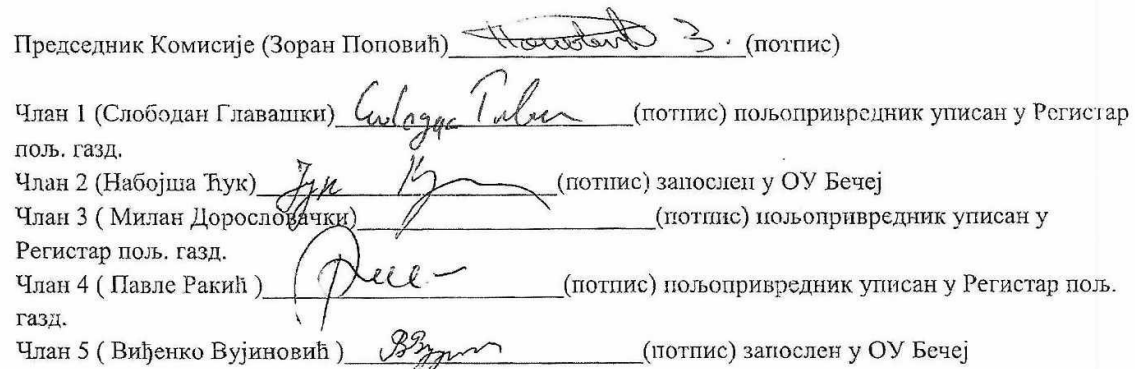 Председник Комисије (Зоран Поповић) Поповић З. (потпис)
Члан 1 (Слободан Главашки) (потпис) пољопривредник уписан у Регистар
пољ. газд.
Члан 2 (Набојша Ћук) (потпис) запослен у ОУ Бечеј
Члан 3 ( Милан Дорословачки) (потпис) пољопривредник уписан у
Регистар пољ. газд.
Члан 4 ( Павле Ракић ) (потпис) пољопривредник уписан у Регистар пољ.
газд.
Члан 5 ( Виђенко Вујиновић ) (потпис) запослен у ОУ Бечеј